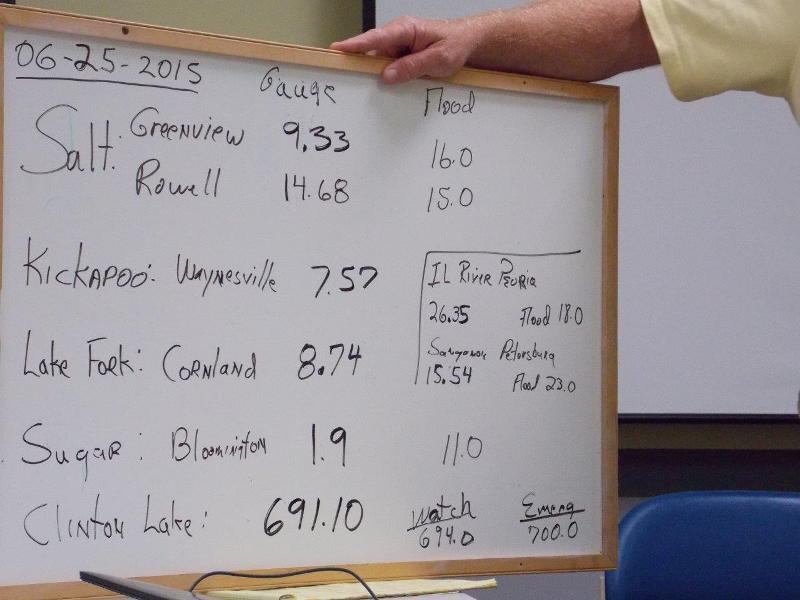 06-25-2015 Gauge Flood
Salt: Greenview 9.33 16.0
Rowell 14.68 15.0
Kickapoo: Waynesville 7.57
IL River Peoria
26.35 Flood 18.0
Sangamon Petersburg
15.54 Flood 23.0
Lake Fork: Cornland 8.74
Sugar: Bloomington 1.9 11.0
Clinton Lake: 691.10 Watch 694.0 Emerg 700.0